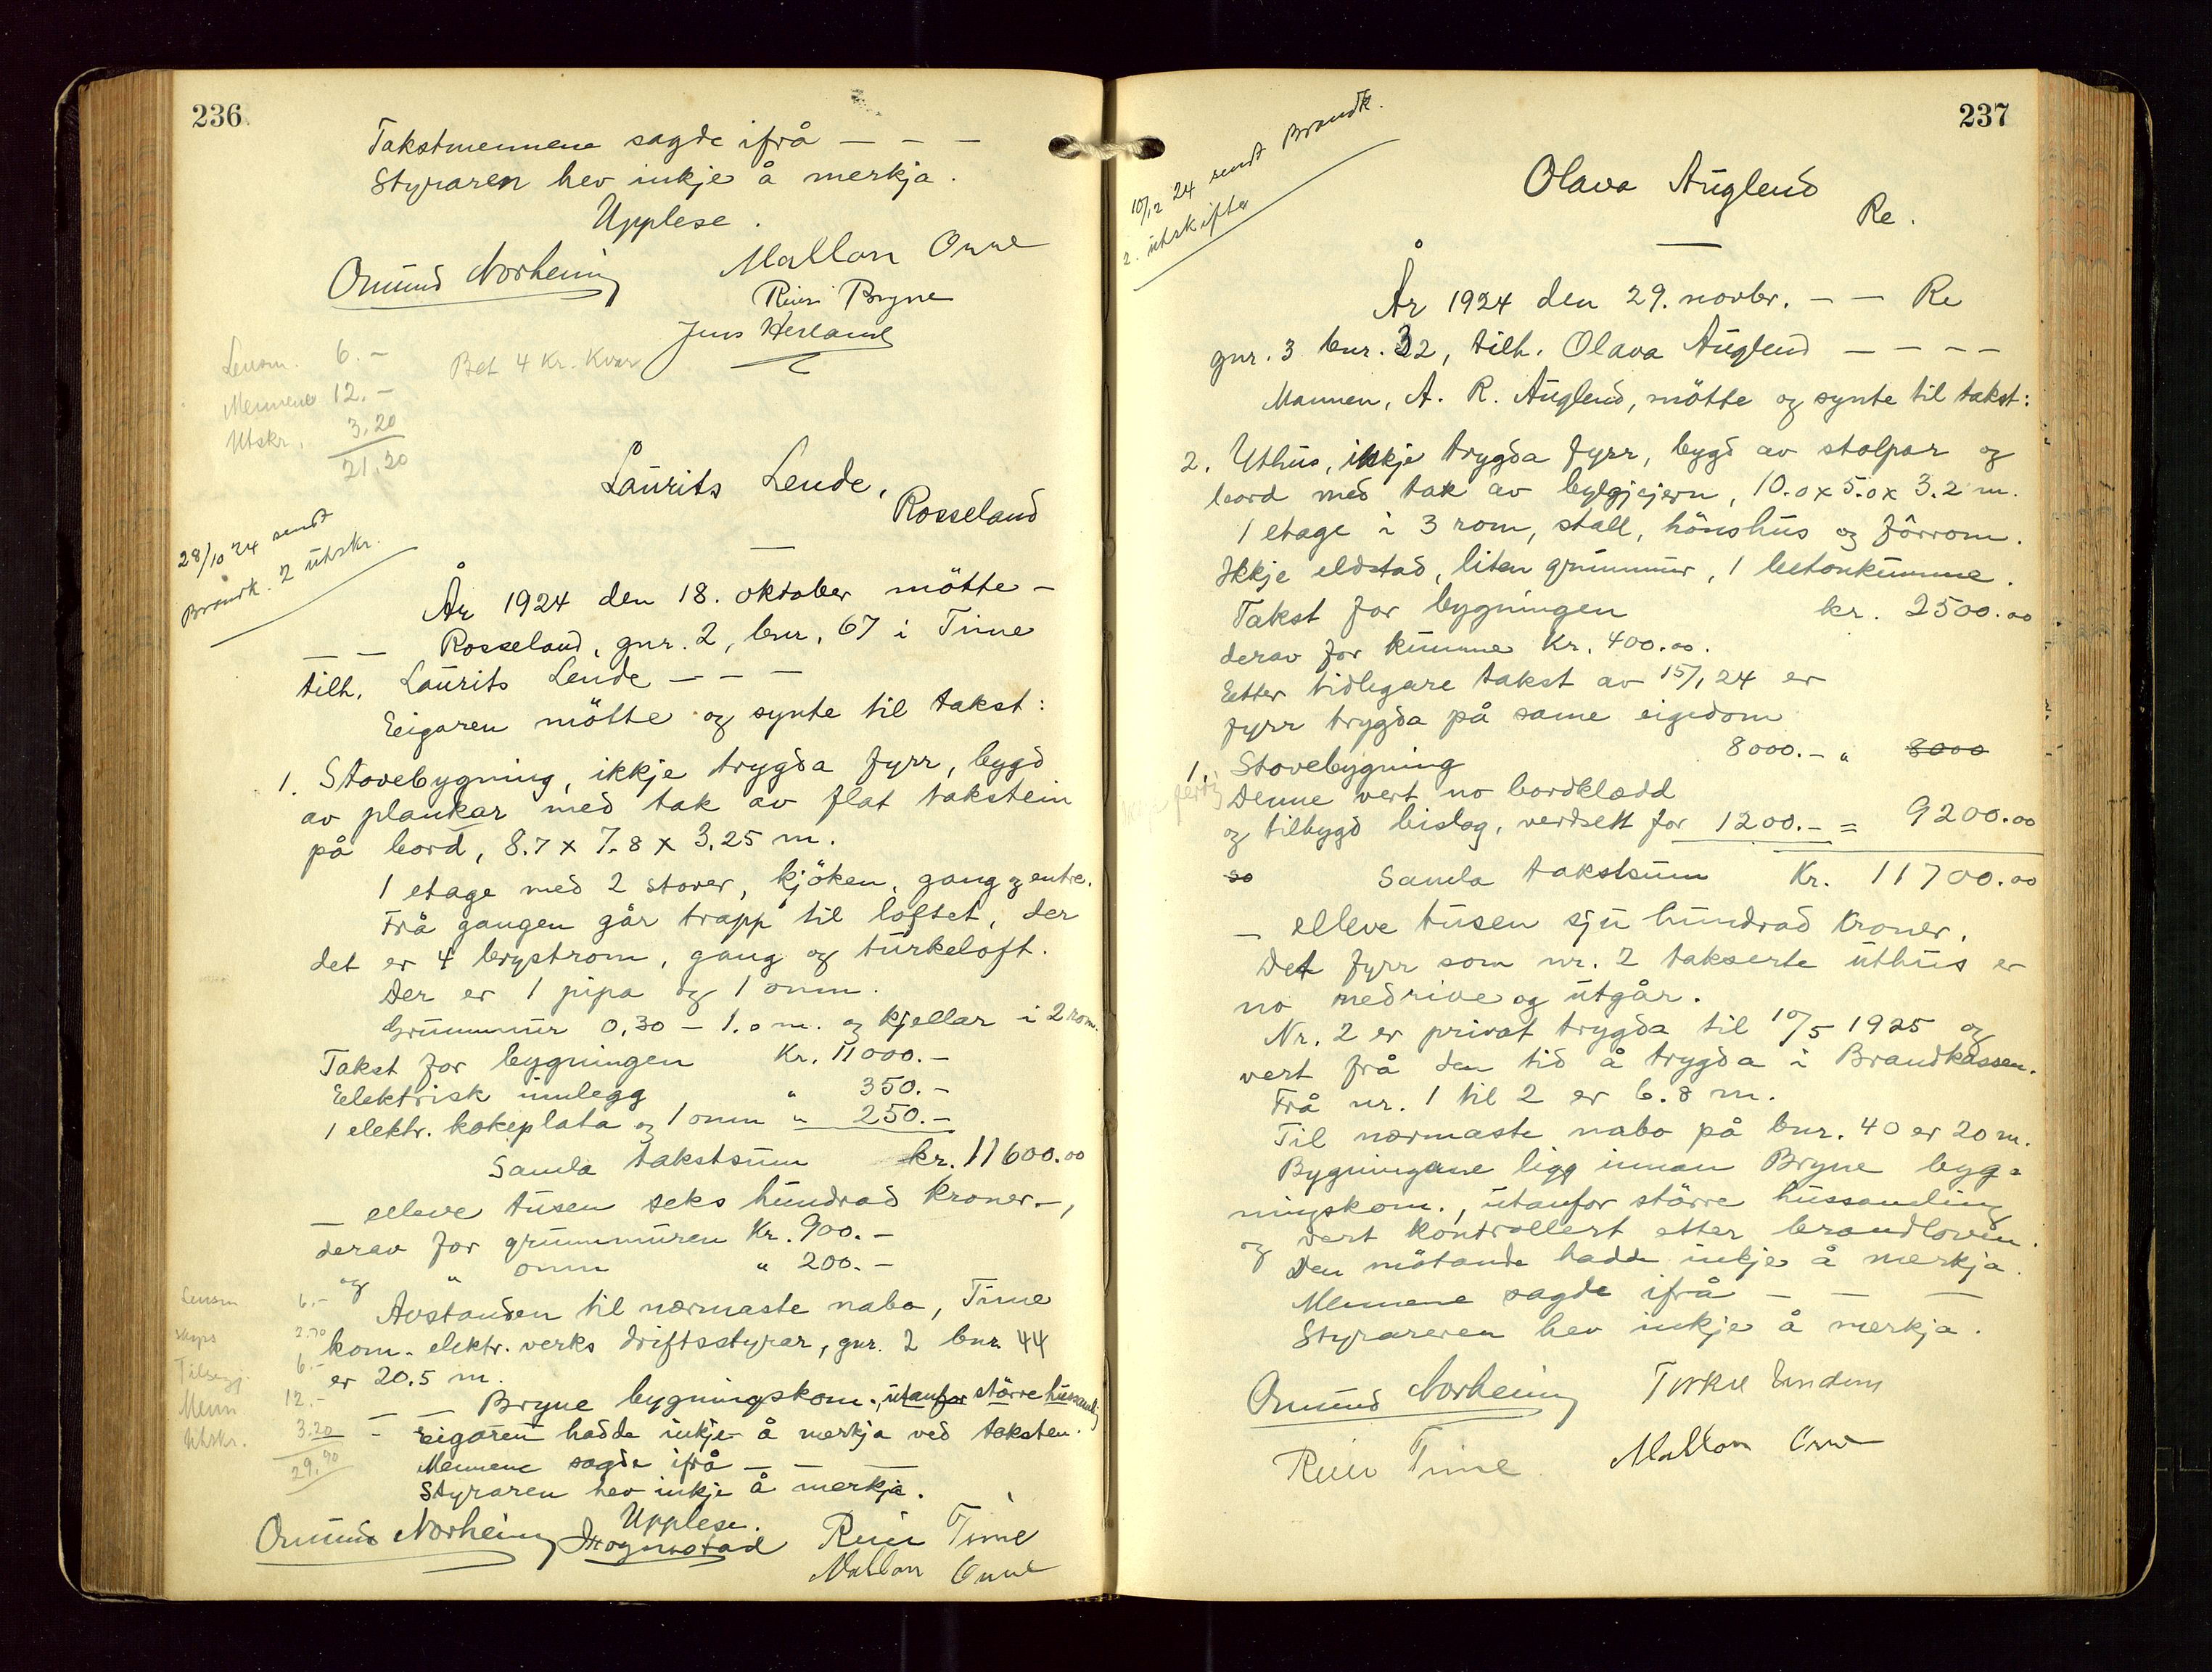 236
Takstmennene sagde ifrå — — —
Styraren hev inkje å merkja.
Upplese.
Omund Norheim
Mallon Orre
Reier Bryne
Jens Herland
Lensm. 6.-
Mennene 12.-
Utskr. 3,20
21,20
Bet 4 Kr. Kvar
Laurits Lende,
Rosseland
28/10 24 sendt
Brandk. 2 utskr.
År 1924 den 18. oktober mötte —
— — Rosseland, gnr. 2, bnr. 67 i Time
tilh. Laurits Lende — — —
Eigaren mötte og synte til takst:
1. Stovebygning, ikkje trygda fyrr, bygd
av plankar med tak av flat takstein
på bord, 8.7 x 7.8 x 3.25 m.
1 etage med 2 stover, kjöken, gang og entre.
Frå gangen går trapp til loftet, der
det er 4 kvystrom, gang og turkeloft.
Der er 1 pipa og 1 omn.
Grunnmur 0,30 — 1.0 m. og kjellar i 2 rom.
Takst for bygningen Kr. 11000.-
Elektrisk innlegg " 350.-
1 elektr. kokeplata og 1 omn " 250.-
Samla takstsum kr. 11600.00
— elleve tusen seks hundrad kroner.—,
derav for grunnmuren Kr. 900.-
og " omn " 200.-
Avstanden til nærmaste nabo, Time
kom. elektr. verks driftsstyrar, gnr. 2 bnr. 44
er 20.5 m.
— — Bryne bygningskom., utanfor större hussamling
— Eigaren hadde inkje å merkja ved taksten.
Mennene sagde ifrå — — —
Styraren hev inkje å merkja.
Upplese.
Lensm 6.-
Skyss 2.70
Tilsegj. 6.-
Menn 12.-
Utskr. 3.20
29,90
Omund Norheim
Reier Time
Mallon Orre
237
10/12 24 sendt Brandk.
2. utskifter
Olava Auglend
Re.
År 1924 den 29. novbr. — — Re
gnr. 3 bnr. 32, tilh. Olava Auglend — — — —
Mannen, A. R. Auglend, mötte og synte til takst:
2. Uthus, ikkje trygda fyrr, bygd av stolpar og
bord med tak av bylgjejern, 10.0 x 5.0 x 3.2 m.
1 etage i 3 rom, stall, hönshus og fôrrom.
Ikkje eldstad, liten grunnmur, 1 betonkumme.
Takst for bygningen kr. 2500.00
derav for kumme Kr. 400.00.
Etter tidlegare takst av 15/1 24 er
fyrr trygda på same eigedom
1. Stovebygning 8000.- " 8000
Denne vert no bordklædd
og tilbygd bislag, verdsett for 1200.- = 9200.00
so Samla takstsum Kr. 11700.00
— elleve tusen sju hundrad kroner.
Det fyrr som nr. 2 takserte uthus er
no nedrive og utgår.
Nr. 2 er privat trygda til 10/5 1925 og
vert frå den tid å trygda i Brandkassen.
Frå nr. 1 til 2 er 6.8 m.
Til nærmaste nabo på bnr. 40 er 20 m.
Bygningane ligg innan Bryne byg=
ningskom., utanfor större hussamling
og vert kontrollert etter brandloven.
Den mötande hadde inkje å merkja.
Mennene sagde ifrå — — —
Styrareren hev inkje å merkja.
Omund Norheim
Reier Time
Mallon Orre